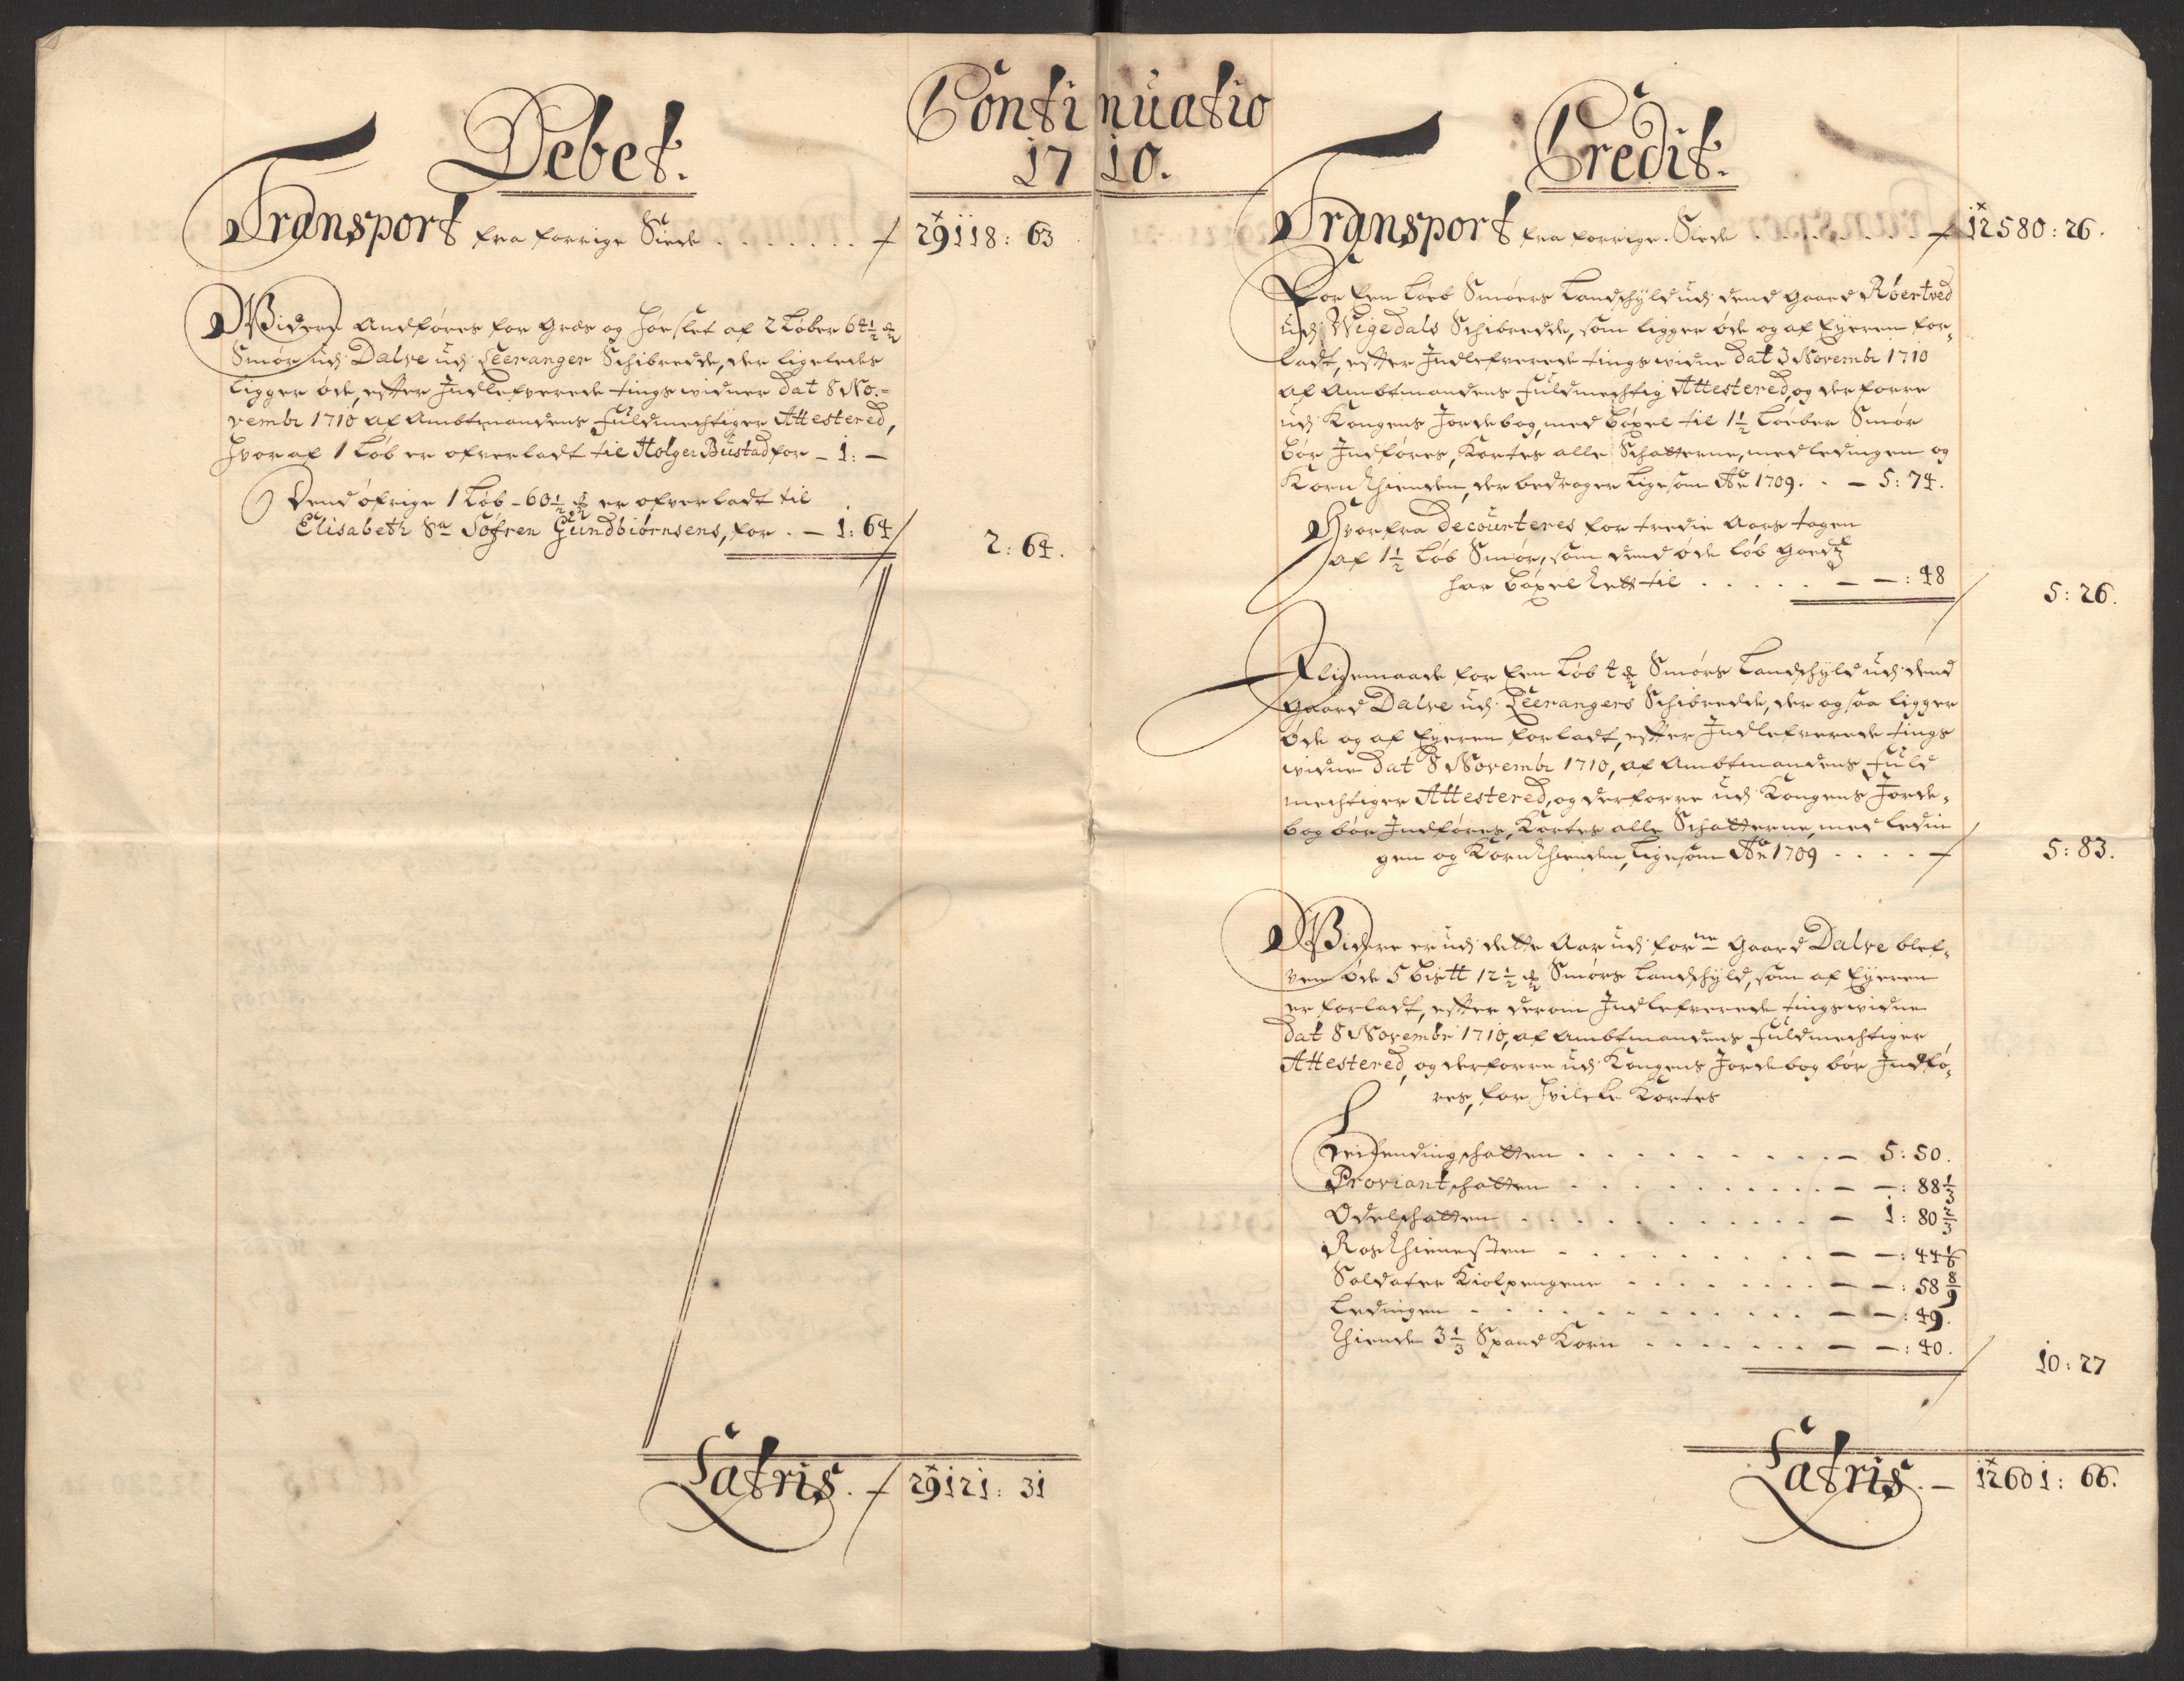 Continuatio
1710.
Debet.
Transport fra forrige Siede . . . . . . . 29118: 63
Widere Andføres for Græs og Høeslet af 2 Løber 64½ ℔
Smør udj Dalve udj Leeranger Schibredde, der ligeledes
ligger øde, efter Indlefverede tingswidner dat 8 No-
vembr 1710 af Ambtmandens fuldmechtiger Attestered,
hvoraf 1 Løb er ofverladt til Holger Bustad for - 1: -
Dend øfrige 1 Løb - 60½ ℔ er ofverladt til
Elisabeth Sa Søfren Gundbiørnsens, for . - 1: 64
2: 64.
Latris. 29121: 31
Credit.
Transport fra forrige Siede . . . . . . . 12580: 26.
For Een Løeb Smøers Landschyld udj dend gaard Røertved
udj Wigedals Schibredde, som ligger øde og af Eyeren for-
ladt, efter Indlefverede tingswidne dat 3 Novembr 1710
af Ambtmandens fuldmechtig Attestered, og derforre
udj Kongens Jordebog, med bøxel til 1½ Løeber Smør
bør Indføres, Kortes alle Schatterne, med ledingen og
Korn Thienden, der bedrager ligesom Ao 1709. . - 5: 74.
Hvorfra Decourteres for tredie Aars tagen
af 1½ Løb Smør, som dend øde løb goedtz
har bøxel Rett til . . . . . - -: 48
5: 26.
Iligemaade for Een Løb 4 ℔ Smørs Landschyld udj dend
gaard Dalve udj Leerangers Schibredde, der og saa ligger
øde og af Eyeren forladt, efter Indlefverede tings
widne dat 8 Novembr 1710, af Ambtmandens fuld
mechtiger Attestered, og derforre udj Kongens Jorde-
bog bør Indføres, Kortes alle Schatterne, med ledin
gen og Korn Thienden, ligesom Ao 1709 . . . .
5: 83.
Widere er udj dette Aar udj forne Gaard Dalve blef-
ven øde 5 Bistt 12½ ℔ Smørs Landschyld, som af Eyeren
er forladt, efter derom Indlefverede tingswidne
dat 8 Novembr 1710, af Ambtmandens fuldmechtiger
Attestered, og derforre udj Kongens Jordebog bør Indfø-
res, for hvilcke Kortes
Leilendingschatten . . . . . . . . . - 5: 50.
Proviantschatten . . . . . . . . . - -: 88⅓
Odelschatten . . . . . . . . . . - 1: 80⅔
Rosthienesten . . . . . . . . . - -: 44⅙
Soldater Kiolpengene . . . . . . . - -: 58 8/9
Ledingen . . . . . . . . . . . - -: 49.
Thiende 3⅓ Spand Korn . . . . . . . - -: 40.
10: 27
Latris. - 12601: 66.